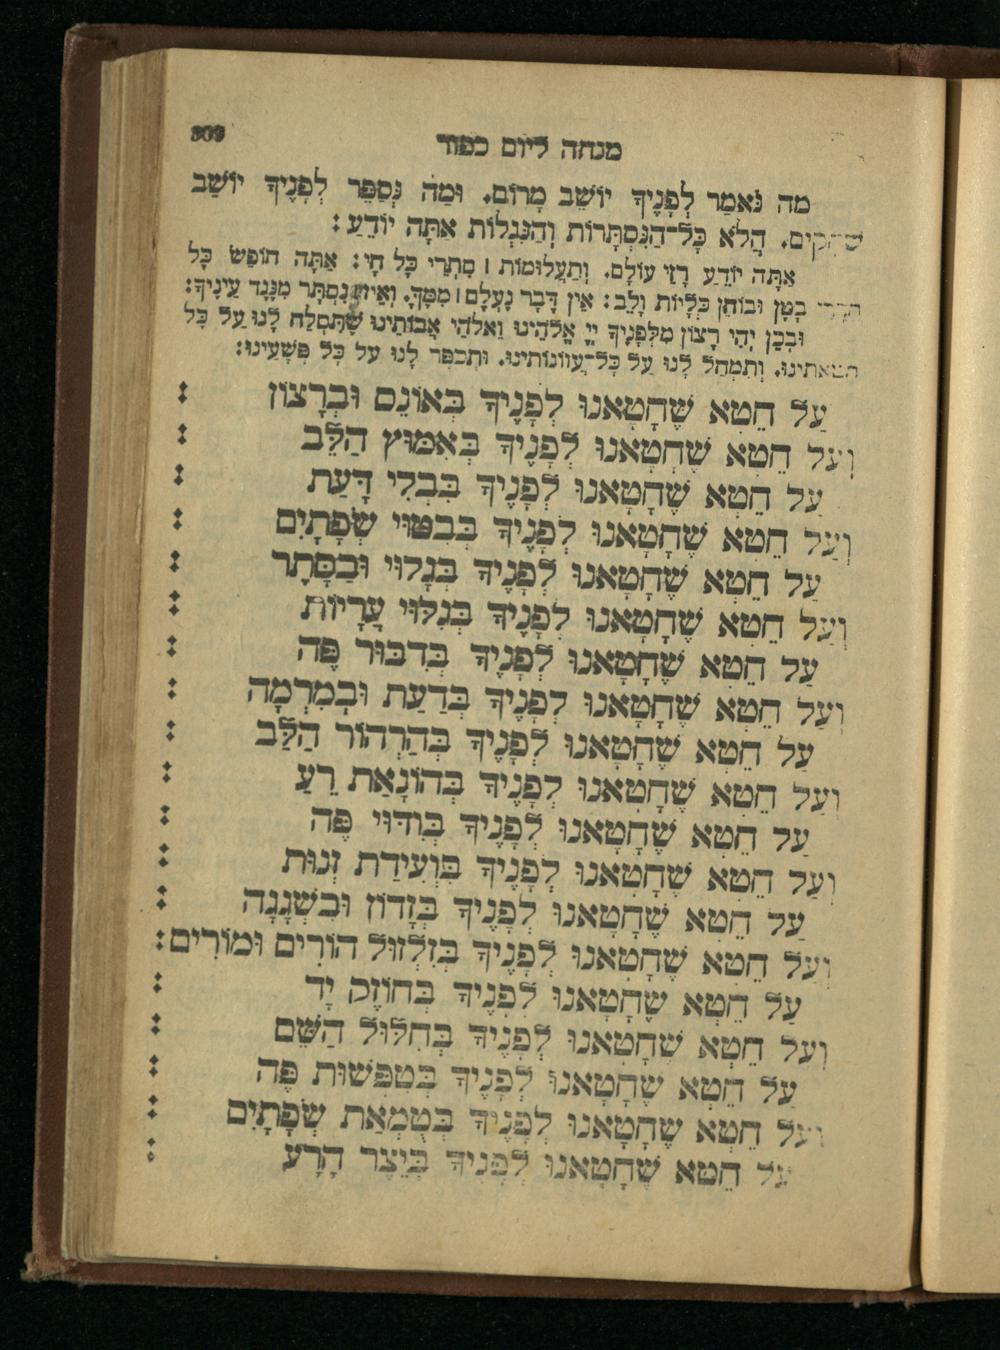 מנחה ליום כפור 309
מה נֹּאמַר לְפָנֶיךָ יוֹשֵׁב מָרוֹם. וּמַה נְּסַפֵּר לְפָנֶיךָ יוֹשֵׁב
שְׁחָקִים. הֲלֹא כָּל־הַנִּסְתָּרוֹת וְהַנִּגְלוֹת אַתָּה יוֹדֵעַ:
אַתָּה יוֹדֵעַ רָזֵי עוֹלָם. וְתַעֲלוּמוֹת ׀ סִתְרֵי כָּל חָי: אַתָּה חוֹפֵשׂ כָּל
חַדְרֵי בָטֶן וּבוֹחֵן כְּלָיוֹת וָלֵב: אֵין דָּבָר נֶעְלָם ׀ מִמֶּךָּ. וְאֵין נִסְתָּר מִנֶּגֶד עֵינֶיךָ:
וּבְכֵן יְהִי רָצוֹן מִלְּפָנֶיךָ יְיָ אֱלֹהֵינוּ וֵאלֹהֵי אֲבוֹתֵינוּ שֶׁתִּסְלַח לָנוּ עַל כָּל
חַטֹּאתֵינוּ. וְתִמְחַל לָנוּ עַל כָּל־עֲוֹנוֹתֵינוּ. וּתְכַפֵּר לָנוּ עַל כָּל פְּשָׁעֵינוּ:
עַל חֵטְא שֶׁחָטָאנוּ לְפָנֶיךָ בְּאוֹנֵס וּבְרָצוֹן :
וְעַל חֵטְא שֶׁחָטָאנוּ לְפָנֶיךָ בְּאִמּוּץ הַלֵּב :
עַל חֵטְא שֶׁחָטָאנוּ לְפָנֶיךָ בִּבְלִי דָּעַת :
וְעַל חֵטְא שֶׁחָטָאנוּ לְפָנֶיךָ בְּבִטּוּי שְׂפָתָיִם :
עַל חֵטְא שֶׁחָטָאנוּ לְפָנֶיךָ בְּגָלוּי וּבַסָּתֶר :
וְעַל חֵטְא שֶׁחָטָאנוּ לְפָנֶיךָ בְּגִלּוּי עֲרָיוֹת :
עַל חֵטְא שֶׁחָטָאנוּ לְפָנֶיךָ בְּדִבּוּר פֶּה :
וְעַל חֵטְא שֶׁחָטָאנוּ לְפָנֶיךָ בְּדַעַת וּבְמִרְמָה :
עַל חֵטְא שֶׁחָטָאנוּ לְפָנֶיךָ בְּהַרְהוֹר הַלֵּב :
וְעַל חֵטְא שֶׁחָטָאנוּ לְפָנֶיךָ בְּהוֹנָאַת רֵעַ :
עַל חֵטְא שֶׁחָטָאנוּ לְפָנֶיךָ בְּוִדּוּי פֶּה :
וְעַל חֵטְא שֶׁחָטָאנוּ לְפָנֶיךָ בִּוְעִידַת זְנוּת :
עַל חֵטְא שֶׁחָטָאנוּ לְפָנֶיךָ בְּזָדוֹן וּבִשְׁגָגָה :
וְעַל חֵטְא שֶׁחָטָאנוּ לְפָנֶיךָ בְּזִלְזוּל הוֹרִים וּמוֹרִים :
עַל חֵטְא שֶׁחָטָאנוּ לְפָנֶיךָ בְּחוֹזֶק יָד :
וְעַל חֵטְא שֶׁחָטָאנוּ לְפָנֶיךָ בְּחִלּוּל הַשֵּׁם :
עַל חֵטְא שֶׁחָטָאנוּ לְפָנֶיךָ בְּטִפְּשׁוּת פֶּה :
וְעַל חֵטְא שֶׁחָטָאנוּ לְפָנֶיךָ בְּטֻמְאַת שְׂפָתָיִם :
עַל חֵטְא שֶׁחָטָאנוּ לְפָנֶיךָ בְּיֵצֶר הָרָע :